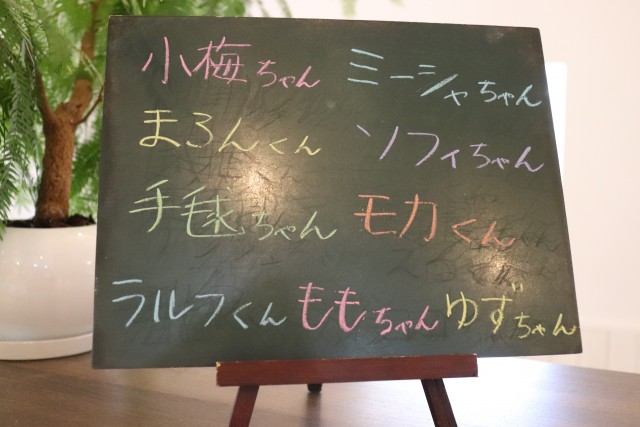 小梅ちゃん ミーシャちゃん
まろんくん ソフィちゃん
手毬ちゃん モカくん
ラルフくん ももちゃん ゆずちゃん